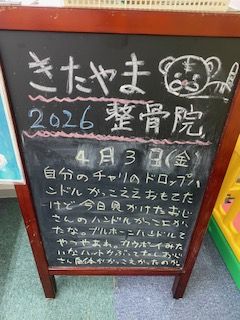 きたやま
2026 整骨院
4月3日(金)
自分のチャリのドロップハ
ンドルかっこええおもてた
けど今日見かけたおじ
さんのハンドルがっこよかっ
たな。ブルホーンハンドルて
やつやねん。カウボーイみた
いなハットかぶってたしおじ
さん自体がかっこよかったのか。